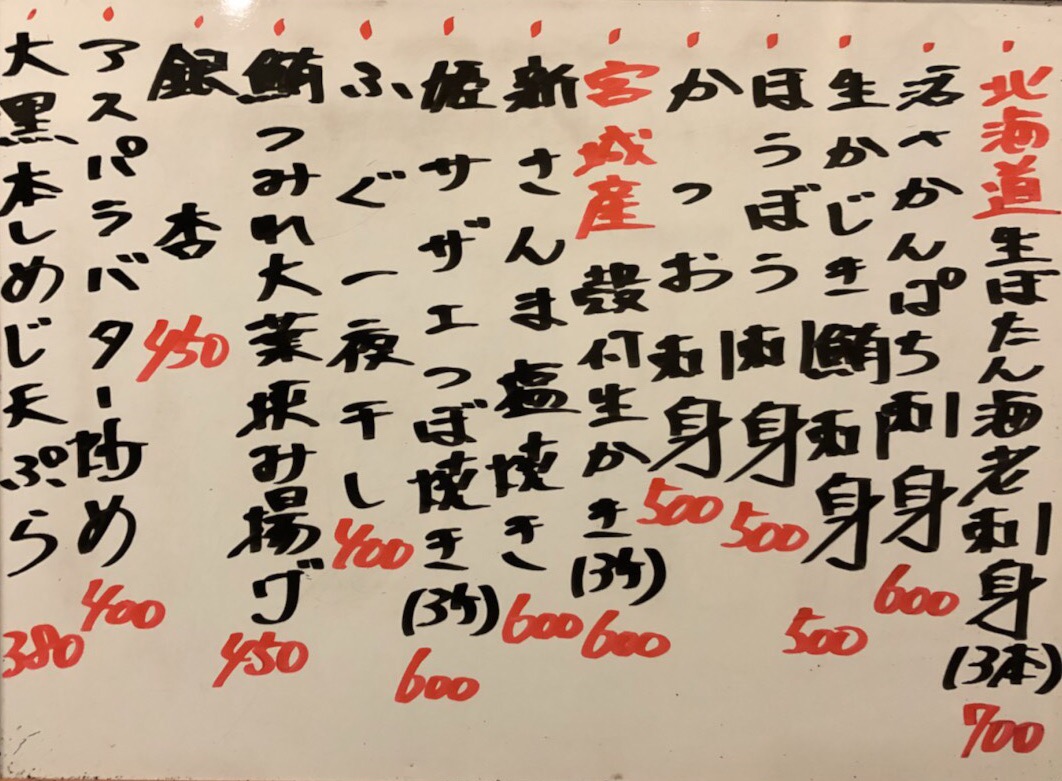 北海道生ぼたん海老刺身(3本)700
活さかんぱち刺身600
生かじき鮪刺身500
ほうぼう刺身500
かつお刺身500
宮城産殻付生かき(3ケ)600
新さんま塩焼き600
姫サザエつぼ焼き(3ケ)600
ふぐ一夜干し400
鮪つみれ大葉挟み揚げ450
銀杏450
アスパラバター炒め400
大黒本しめじ天ぷら380